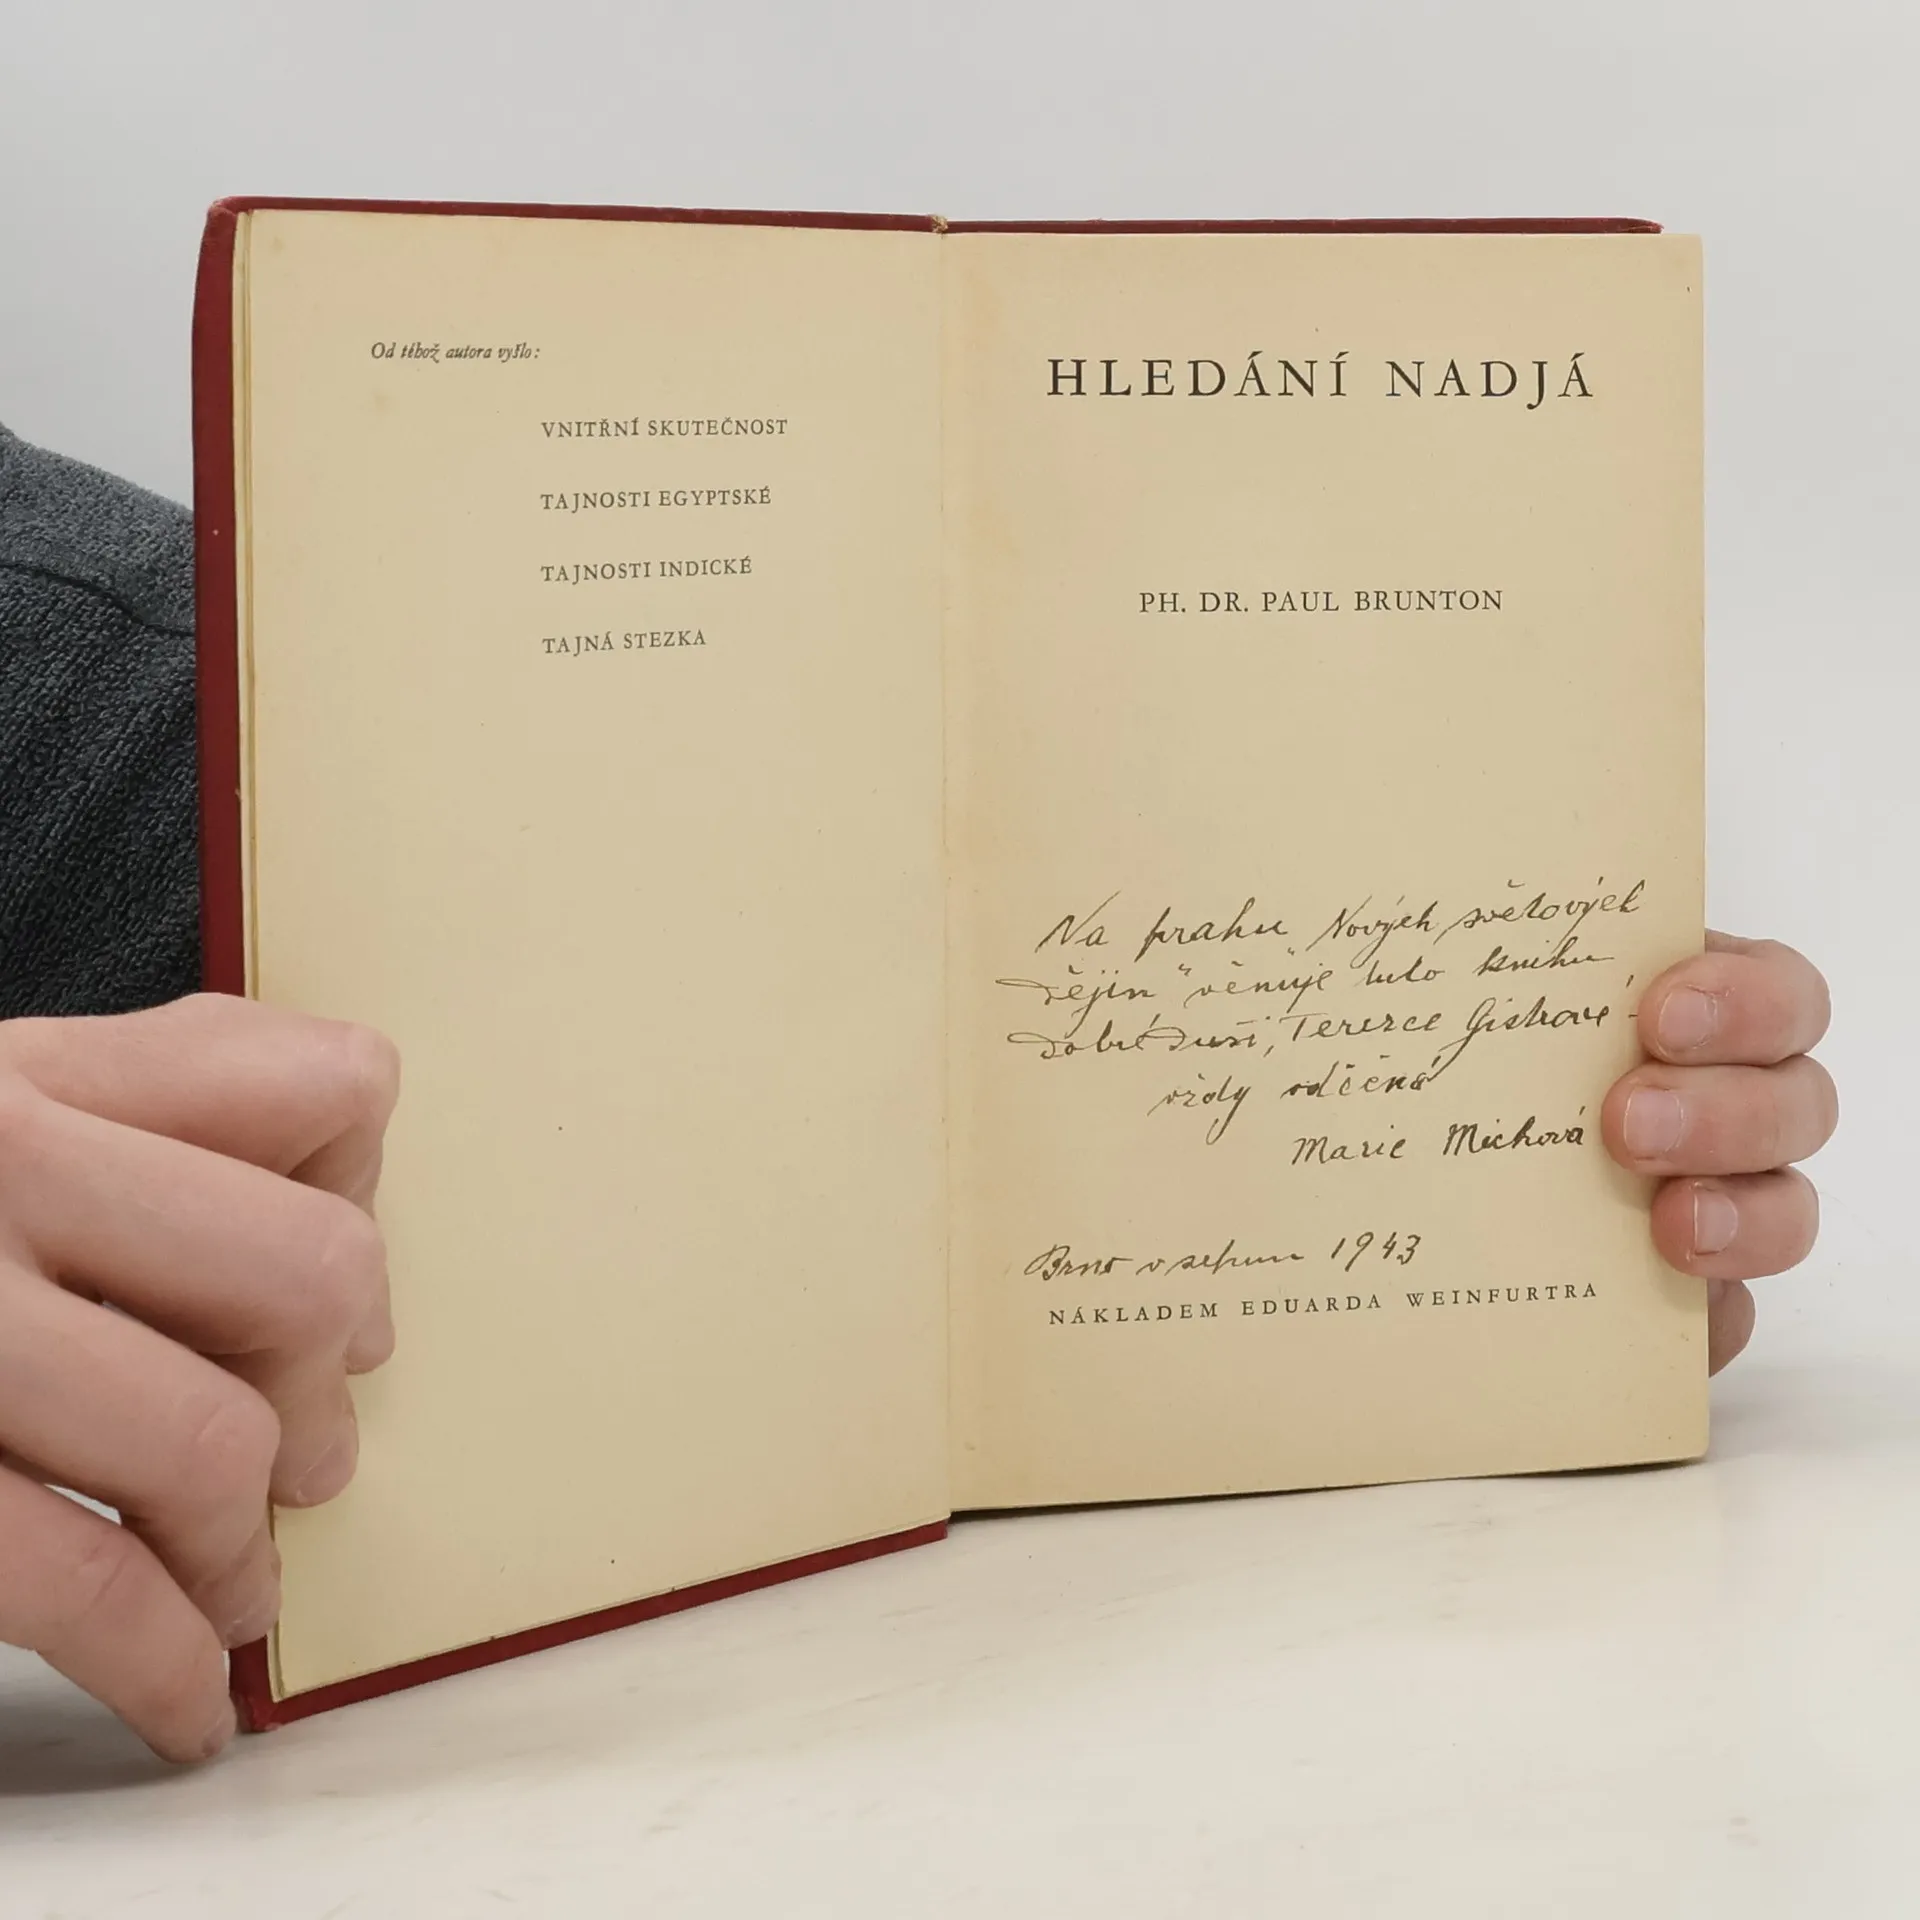 Od téhož autora vyšlo:
VNITŘNÍ SKUTEČNOST
TAJNOSTI EGYPTSKÉ
TAJNOSTI INDICKÉ
TAJNÁ STEZKA
HLEDÁNÍ NADJÁ
PH. DR. PAUL BRUNTON
Na prahu „Nových světových
dějin“ věnuje tuto knihu
dobré duši, Tererce Gistrové -
vždy vděčná
Marie Michová
Brno v srpnu 1943
NÁKLADEM EDUARDA WEINFURTRA